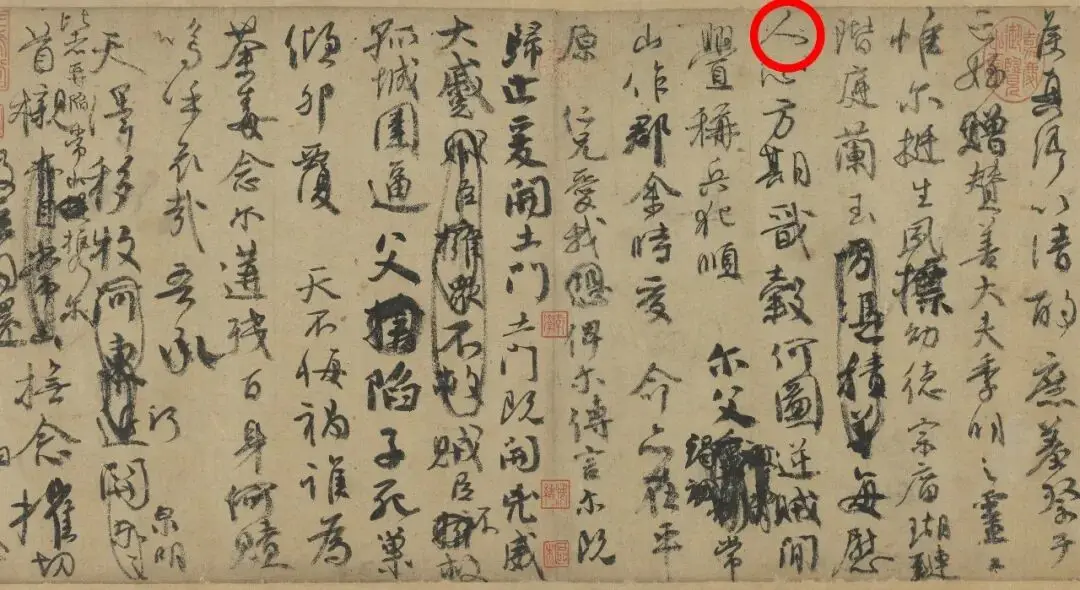 侯真卿以清酌庶羞祭于
亡姪贈贊善大夫季明之靈曰
惟爾挺生夙標幼德宗廟瑚璉
階庭蘭玉方憑積善每慰
人心方期戩穀何圖逆賊閒
釁稱兵犯順爾父竭誠常
山作郡余時受命亦在平
原仁兄愛我恐俾爾傳言爾既
歸止爰開土門土門既開凶威
大蹙賊臣擁眾不救賊臣不擁救
孤城圍逼父擒陷子死巢
傾卵覆天不悔禍誰為
荼毒念爾遘殘百身何贖
嗚乎哀哉吾承
天澤移牧河東近河關泉明
比者再陷常山攜爾
首櫬亦自常山撫念摧切